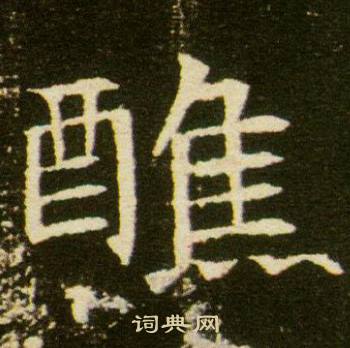 醮
词典网